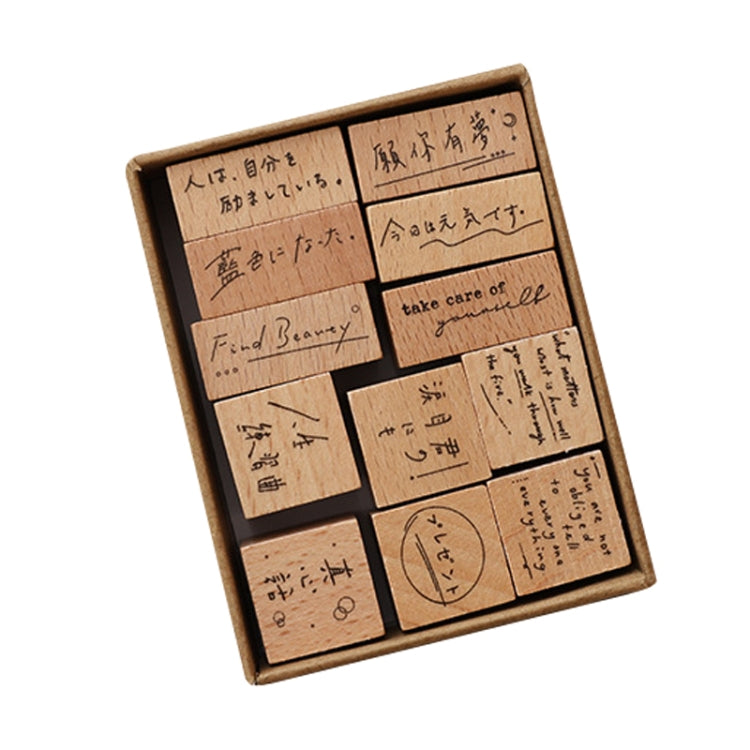 人は、自分を
励ましている。
願你有夢
藍色になった。
今日は元気です。
Find Beauey
take care of
yourself
人生
練習曲
浪目君
にり!
も
"what matters
most is how well
you walk through
the fire."
真心話
プレゼント
you are not
obliged
to tell
everyone
everything